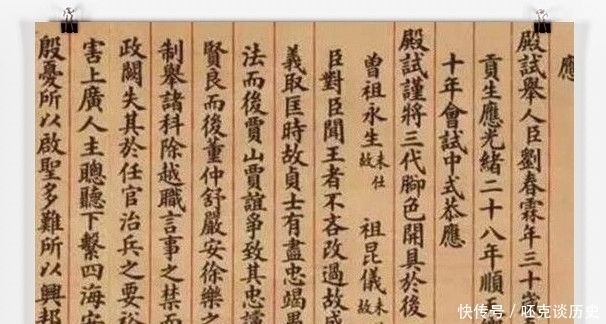 應
殿試舉人臣劉春霖年三十歲
貢生應光緒二十八年順
十年會試中式恭應
殿試謹將三代腳色開具於後
曾祖永生未仕故 祖昆儀未故
臣對臣聞王者不吝改過故
義取匡時故貞士有盡忠竭
法而後賈山賈誼爭致其忠讜
賢良而後董仲舒嚴安徐樂之
制舉諸科除越職言事之禁而
政闕失其於任官治兵之要裕
害上廣人主聰聽下繫四海安
殷憂所以啟聖多難所以興邦
快传号 / 呸克谈历史